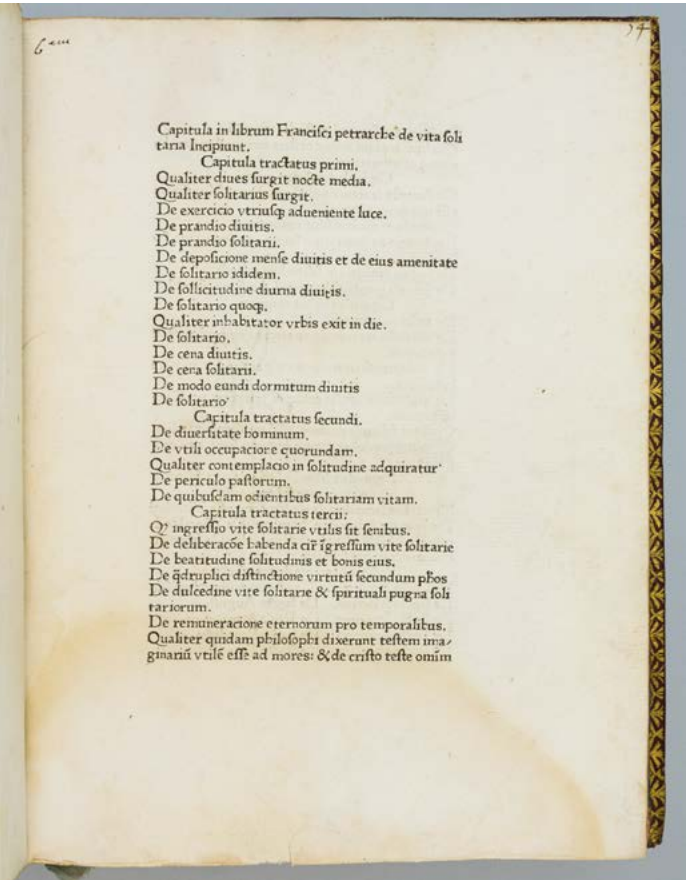 6em
54
Capitula in librum Franciſci petrarche de vita ſoli
taria Incipiunt.
Capitula tractatus primi.
Qualiter diues ſurgit nocte media.
Qualiter ſolitarius ſurgit.
De exercicio vtriuſqꝫ adueniente luce.
De prandio diuitis.
De prandio ſolitarii.
De depoſicione menſe diuitis et de eius amenitate
De ſolitario ididem.
De ſollicitudine diurna diuitis.
De ſolitario quoqꝫ.
Qualiter inhabitator vrbis exit in die.
De ſolitario.
De cena diuitis.
De cena ſolitarii.
De modo eundi dormitum diuitis
De ſolitario
Capitula tractatus ſecundi.
De diuerſitate hominum.
De vtili occupacione quorundam.
Qualiter contemplacio in ſolitudine adquiratur
De periculo paſtorum.
De quibuſdam odientibus ſolitariam vitam.
Capitula tractatus tercii:
Qꝫ ingreſſio vite ſolitarie vtilis ſit ſenibus.
De deliberacōe habenda cir̄ īgreſſum vite ſolitarie
De beatitudine ſolitudinis et bonis eius.
De q̄druplici diſtinctione virtutū ſecundum pħos
De dulcedine vite ſolitarie & ſpirituali pugna ſoli
tariorum.
De remuneracione eternorum pro temporalibus.
Qualiter quidam philoſophi dixerunt teſtem ima⸗
ginariū vtilē eſſe ad mores: & de criſto teſte omīm